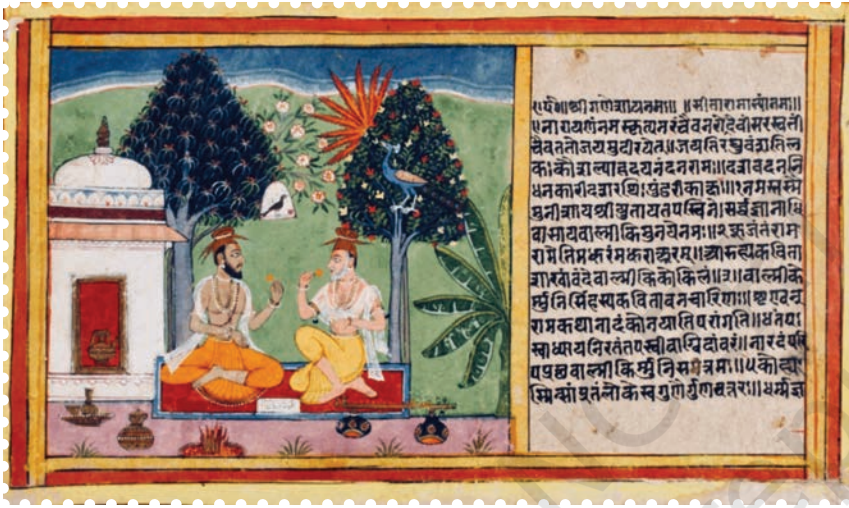 श्रीगणेशायनमः॥ ॥सीतारामाभ्यांनमः॥
नारायणंनमस्कृत्यनरंचैवनरोदेवींसरस्वतीं
चैवततोजयमुदीरयेत्॥जयतिरघुवंशतिल
कःकौशल्याहृदयनंदनरामः॥दशवदननि
धनकारीदाशरथिःपुंडरीकाक्षः॥१नमस्तस्मै
मुनीशायश्रीयुतायतपस्विने।सर्वज्ञानाधि
वासायवाल्मीकिमुनयेनमः॥२कूजंतंराम
रामेतिमधुरंमधुराक्षरम्॥आरुह्यकविता
शाखांवंदेवाल्मीकिकोकिलं॥३॥वाल्मीके
र्मुनिसिंहस्यकवितावनचारिणः॥शृण्वन्
रामकथानादंकोनयातिपरांगतिं॥४तपः
स्वाध्यायनिरतंतपस्वीवाग्विदांवरं॥नारदंपरि
पप्रछवाल्मीकिर्मुनिसत्तमः॥५कोन्व
स्मिन्सांप्रतंलोकेस्वगुणैर्गुणवत्तरः॥धर्मज्ञ